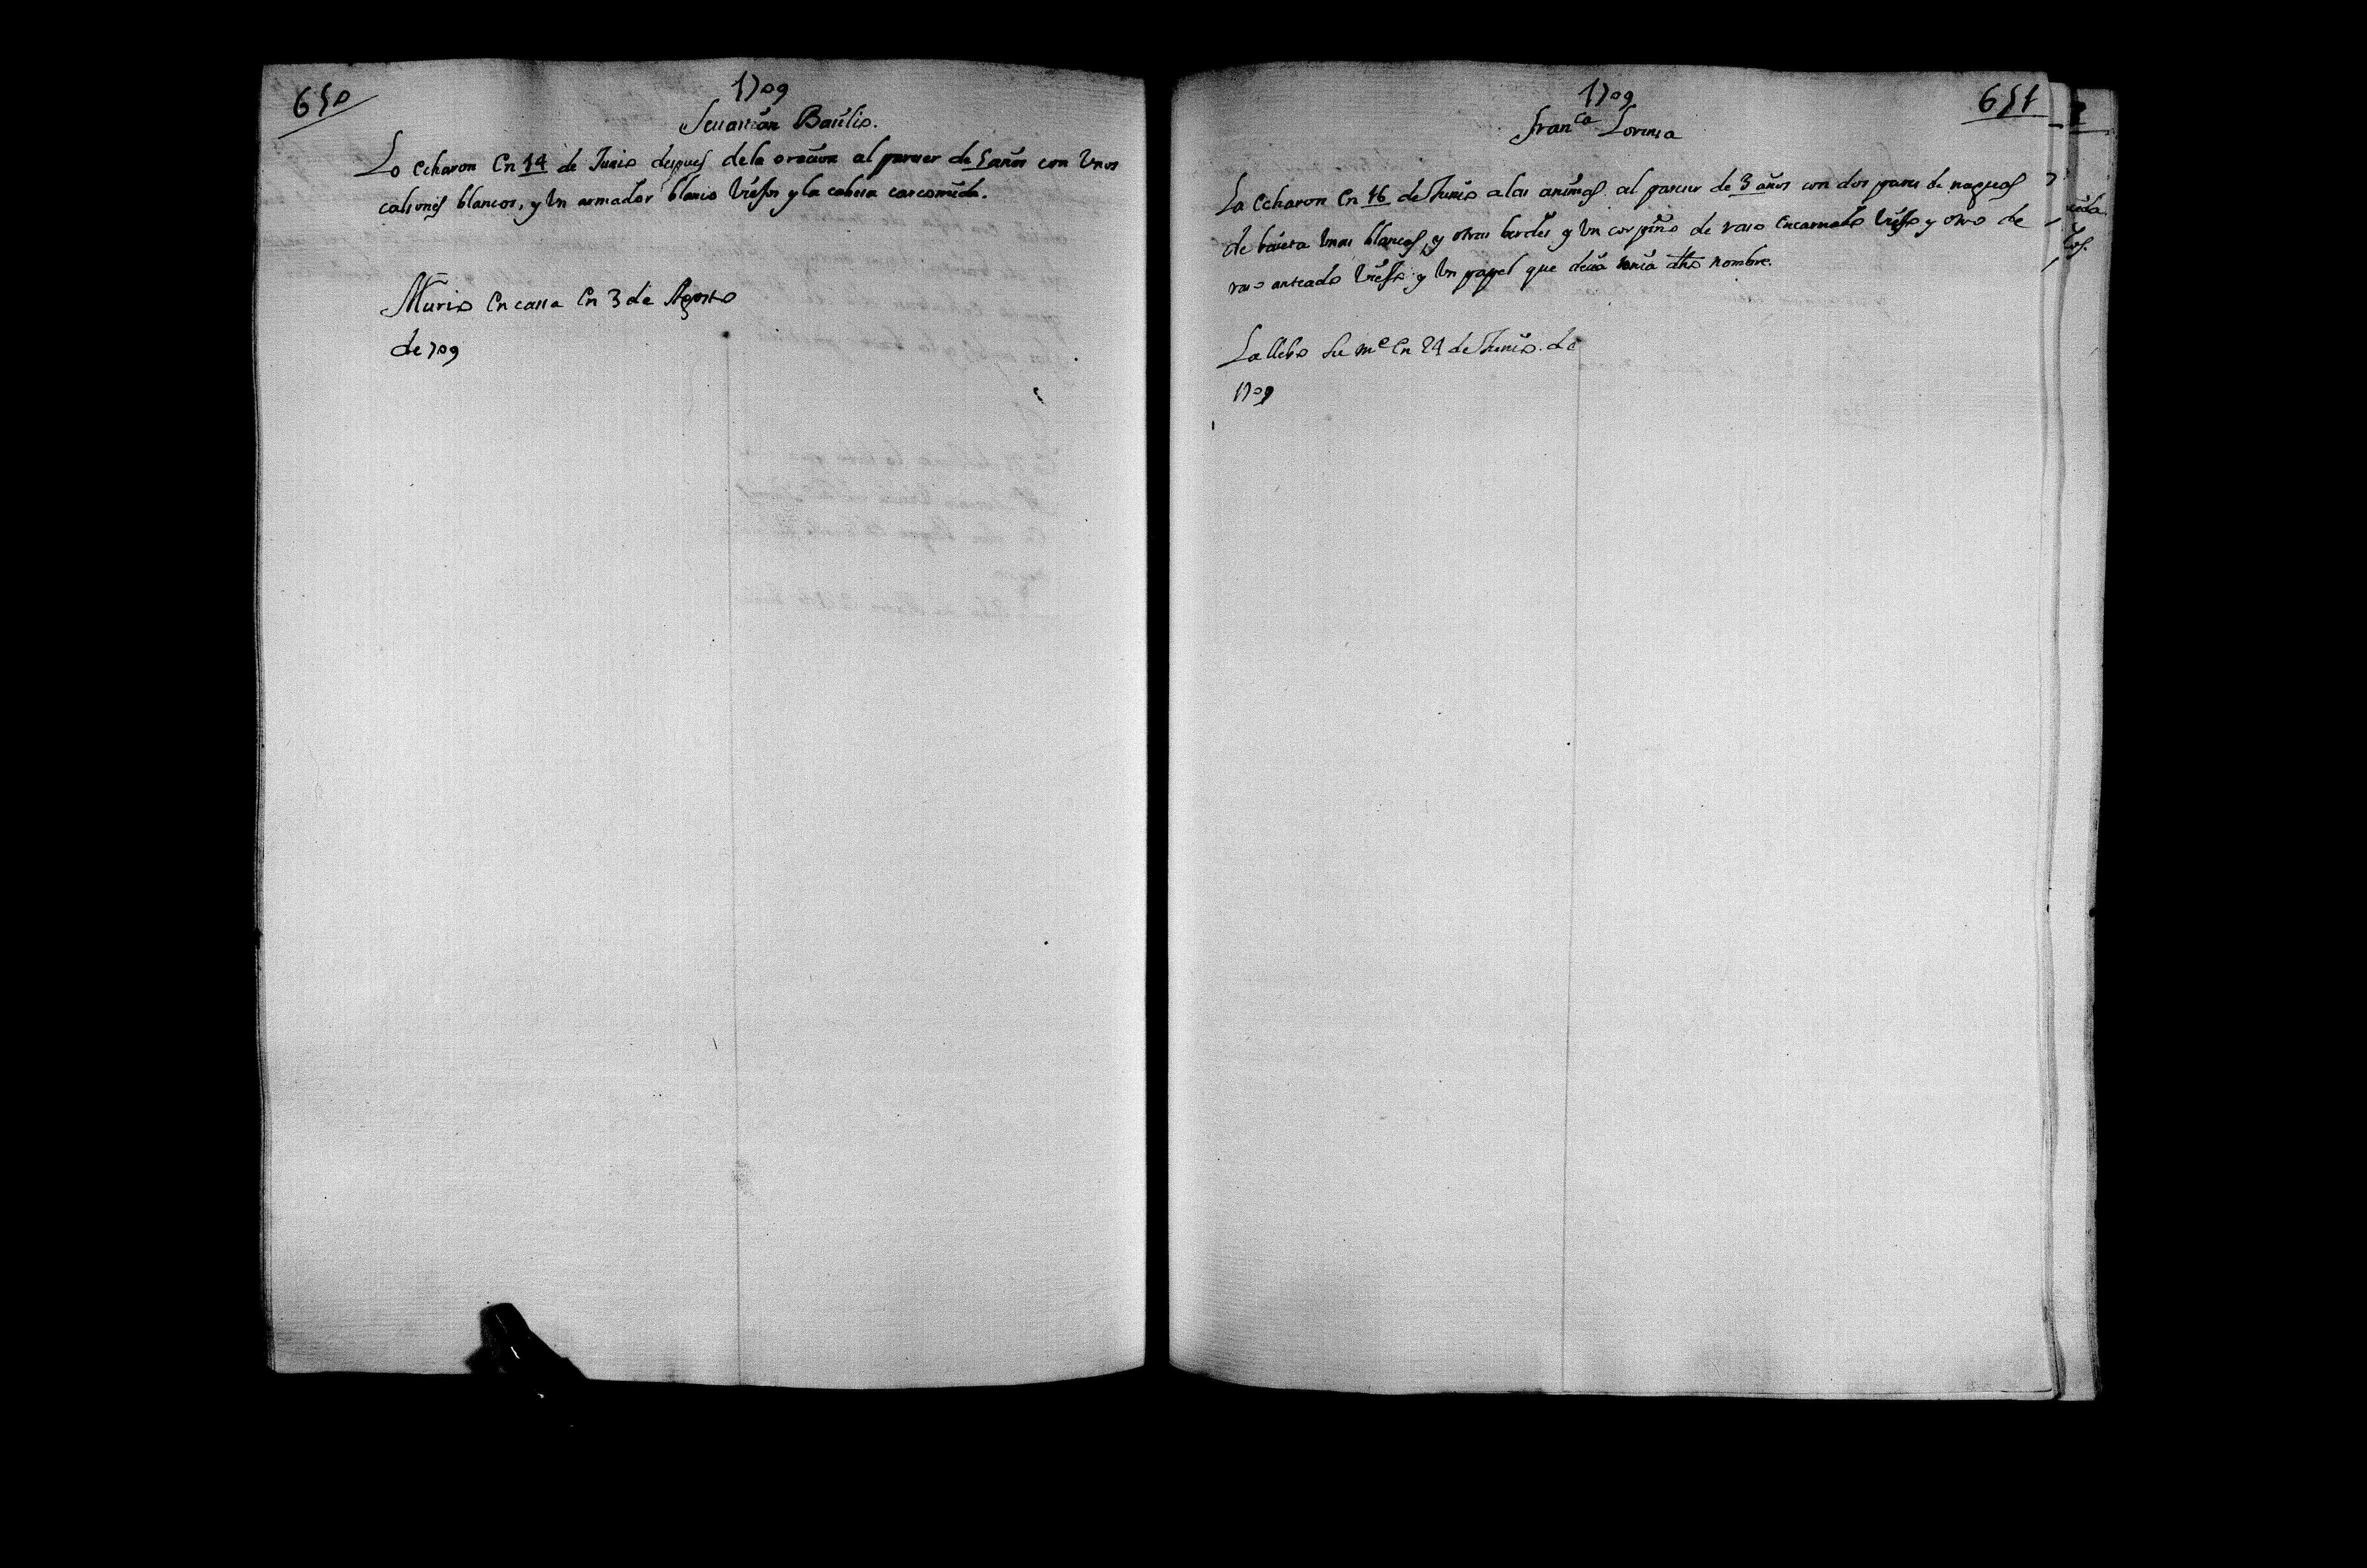 650
1709
Seuastian Bacilio.
Lo echaron En 14 de Junio despues de la oracion al pareser de 5 años con Vnos
calsones blancos, y Vn armador blanco Viejos y la cabesa carcomida.
Murio En casa En 3 de Agosto
de 709
1709
651
Franca Lorensa
La Echaron En 16 de Junio a las animas al pareser de 3 años con dos pares de naguas
de baieta Vnas blancas, y otras berdes y Vn corpiño de raso Encarnado Viejo y otro de
raso anteado Viejo y Vn papel que decia tenia dho nombre.
La llebo su me En 24 de Junio de
1709